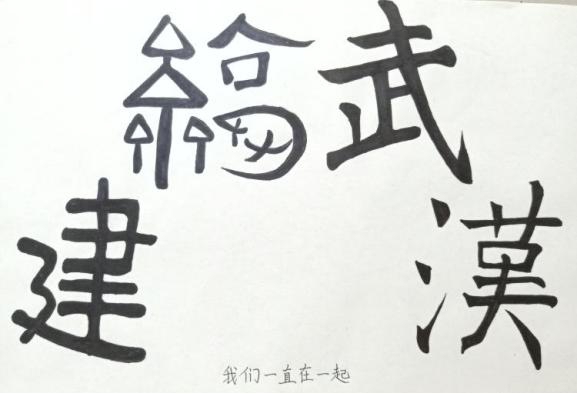 武漢
建
我们一直在一起